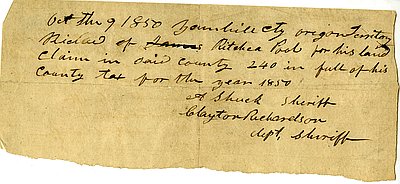 Oct the 9 1850 Yamhill Cty oregon Territory
Recied of James Ritchea Pool for his land
Claim in said county 240 in full of his
County tax for the year 1850
A Shuck Sheriff
Clayton Richardson
dept, Sheriff